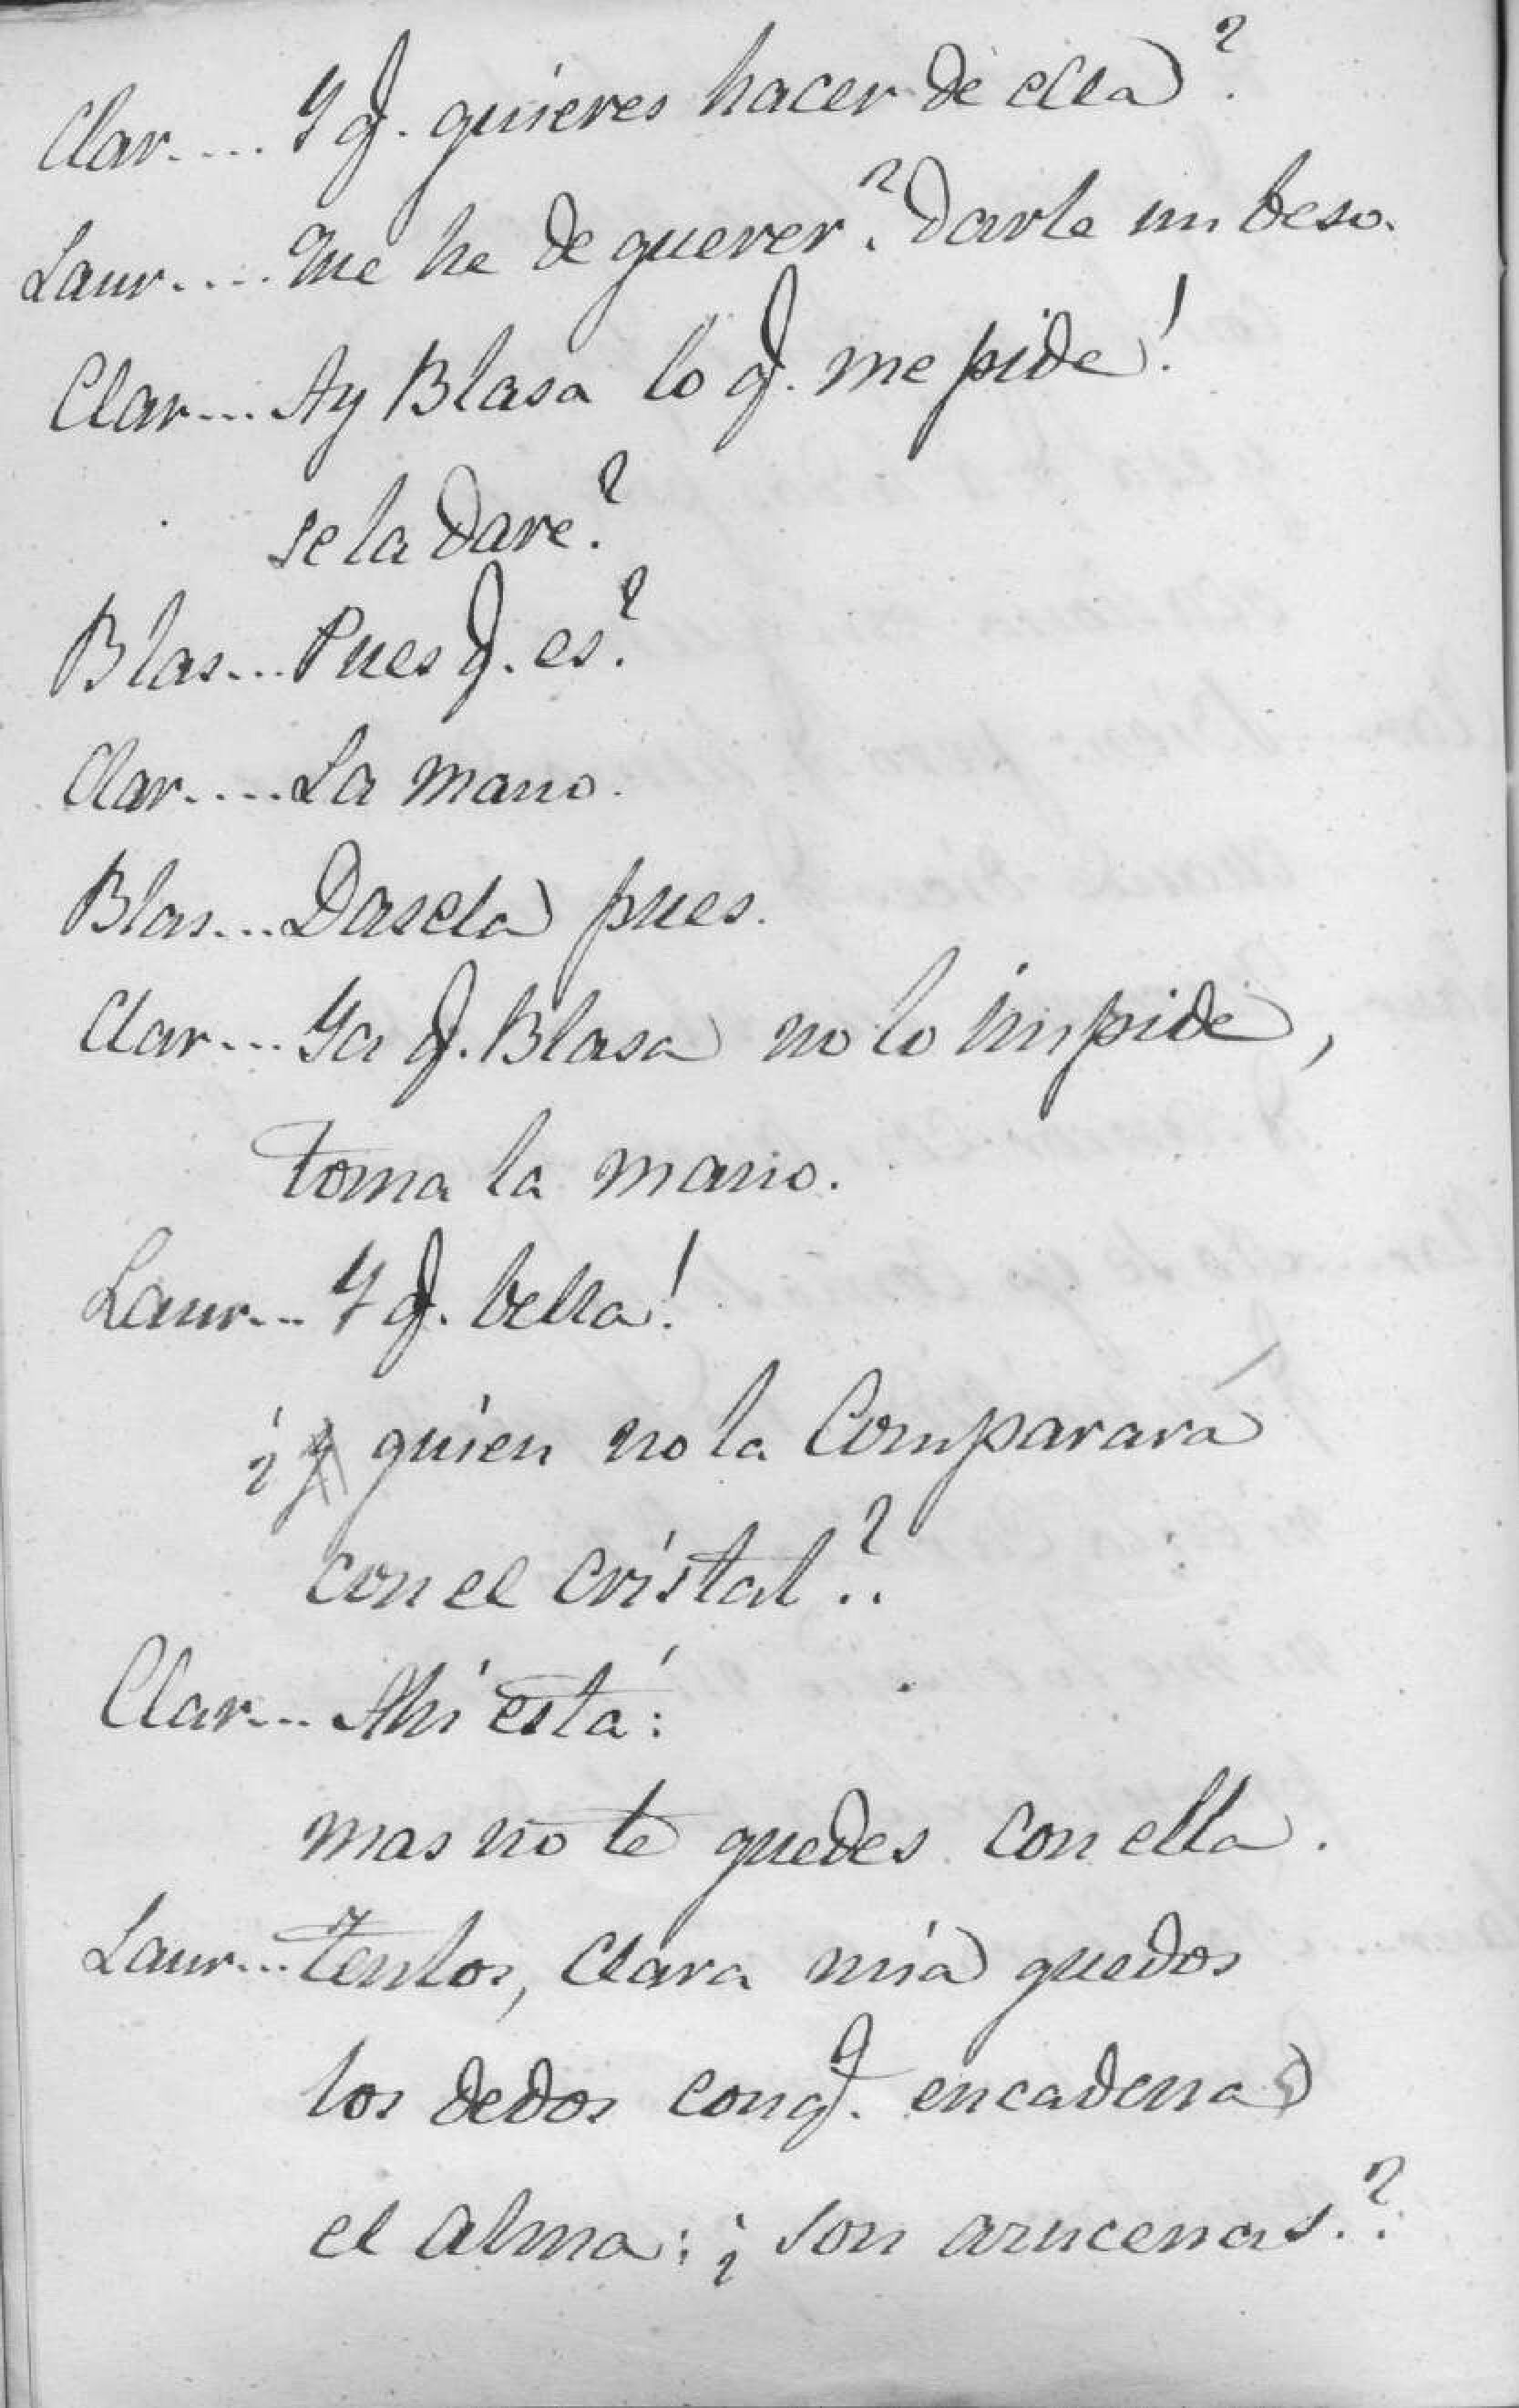 Clar.... Y q. quieres hacer de ella?
Laur.... Que he de querer? Darle un beso.
Clar... Ay Blasa lo q. me pide!
se la dare?
Blas... Pues q. es?
Clar.... La mano.
Blas... Dasela pues.
Clar... Ya q. Blasa no lo impide,
toma la mano.
Laur... Y q. bella!
¿ quien no la Comparará
con el cristal?.
Clar... Ahí está:
mas no te quedes con ella.
Laur... Tenlos, Clara mía quedos
los dedos conq. encadena
el alma: ¿ son azucenas.?